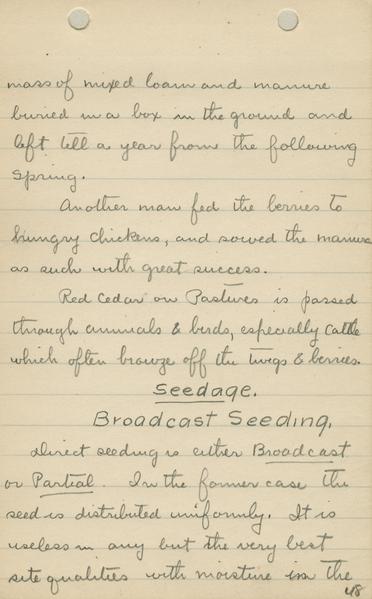 mass of mixed loam and manure
buried in a box in the ground and
left till a year from the following
spring.
Another man fed the berries to
hungry chickens, and sowed the manure
as such with great success.
Red Cedar on Pastures is passed
through animals & birds, especially cattle
which often browze off the twigs & berries.
Seedage.
Broadcast Seeding.
Direct seeding is either Broadcast
or Partial. In the former case the
seed is distributed uniformly. It is
useless in any but the very best
site qualities with moisture in the
48